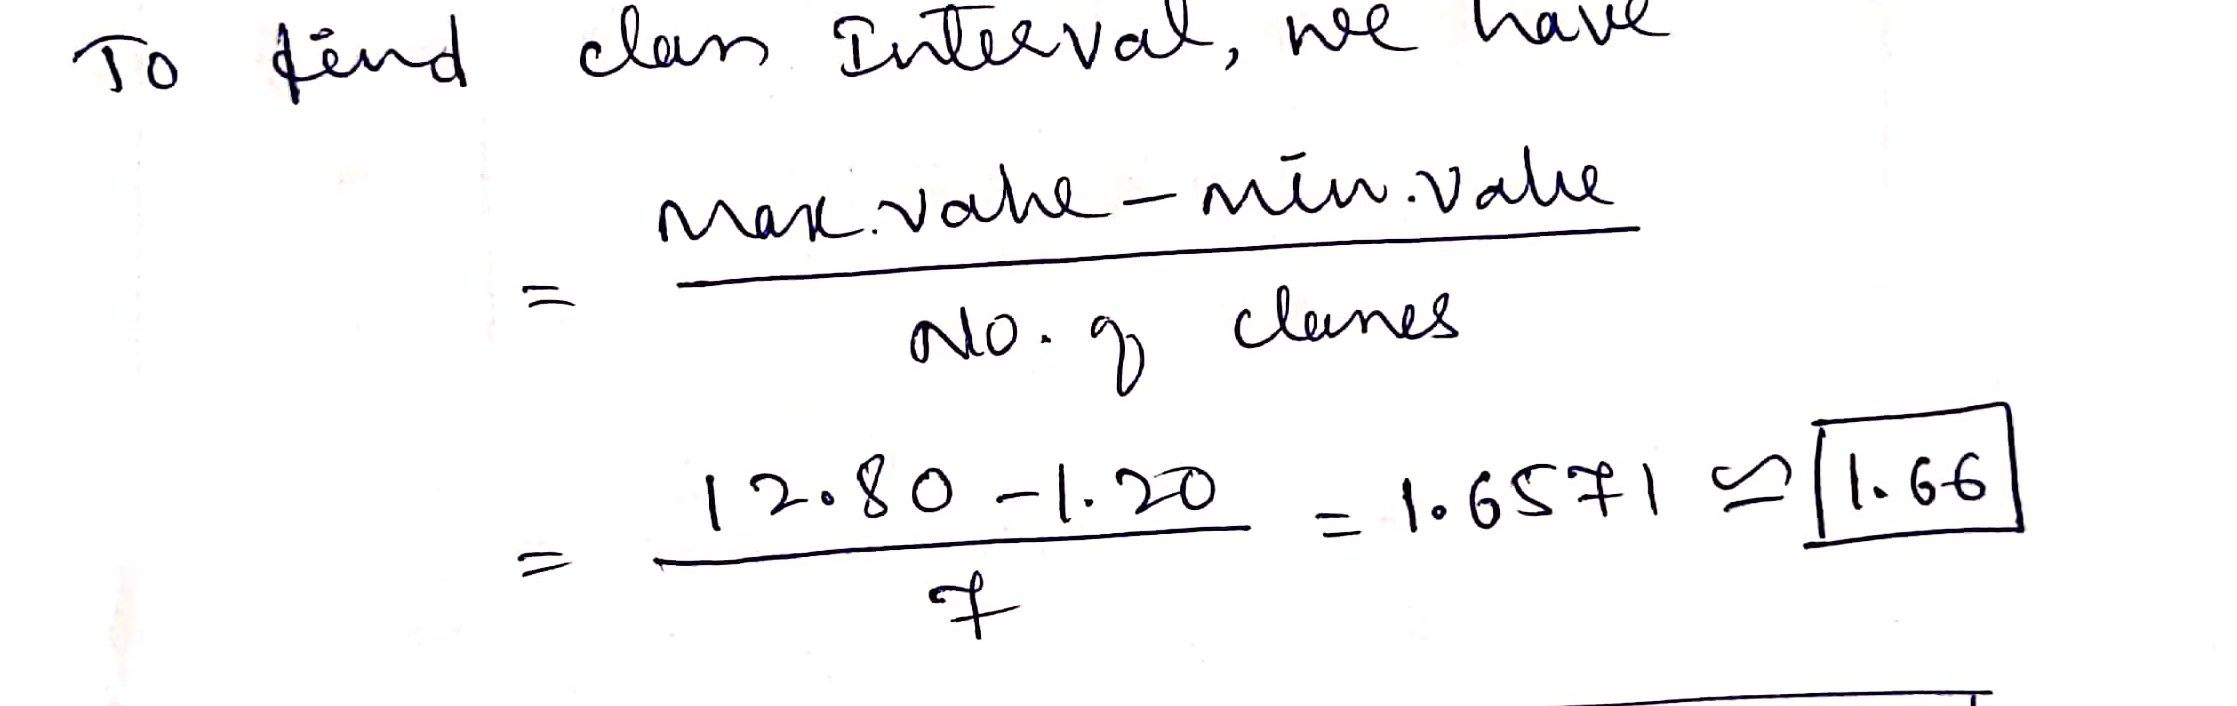 To find class Interval, we have
= Max. value - min. value / No. of classes
= 12.80 - 1.20 / 7 = 1.6571 ≃ 1.66